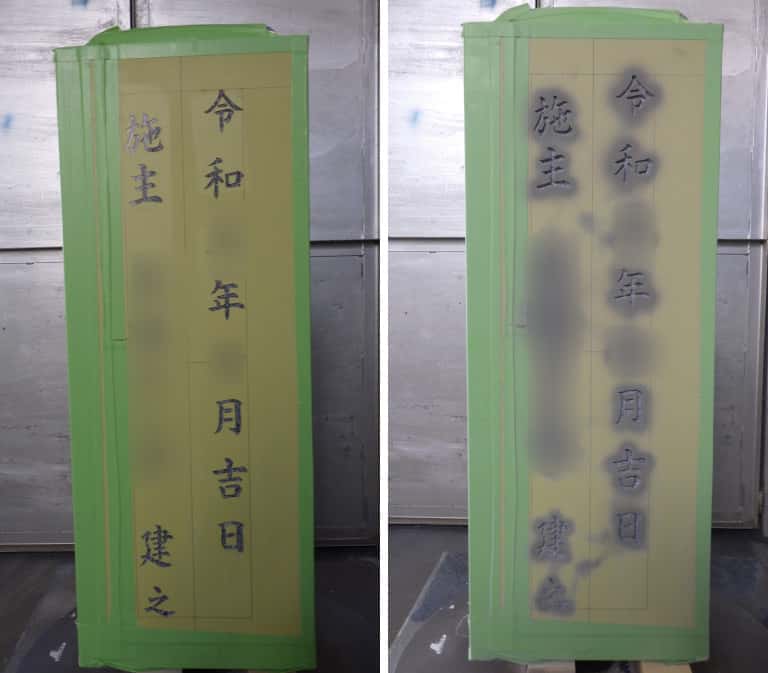 令和年月吉日
施主
建之
令和年月吉日
施主
建之